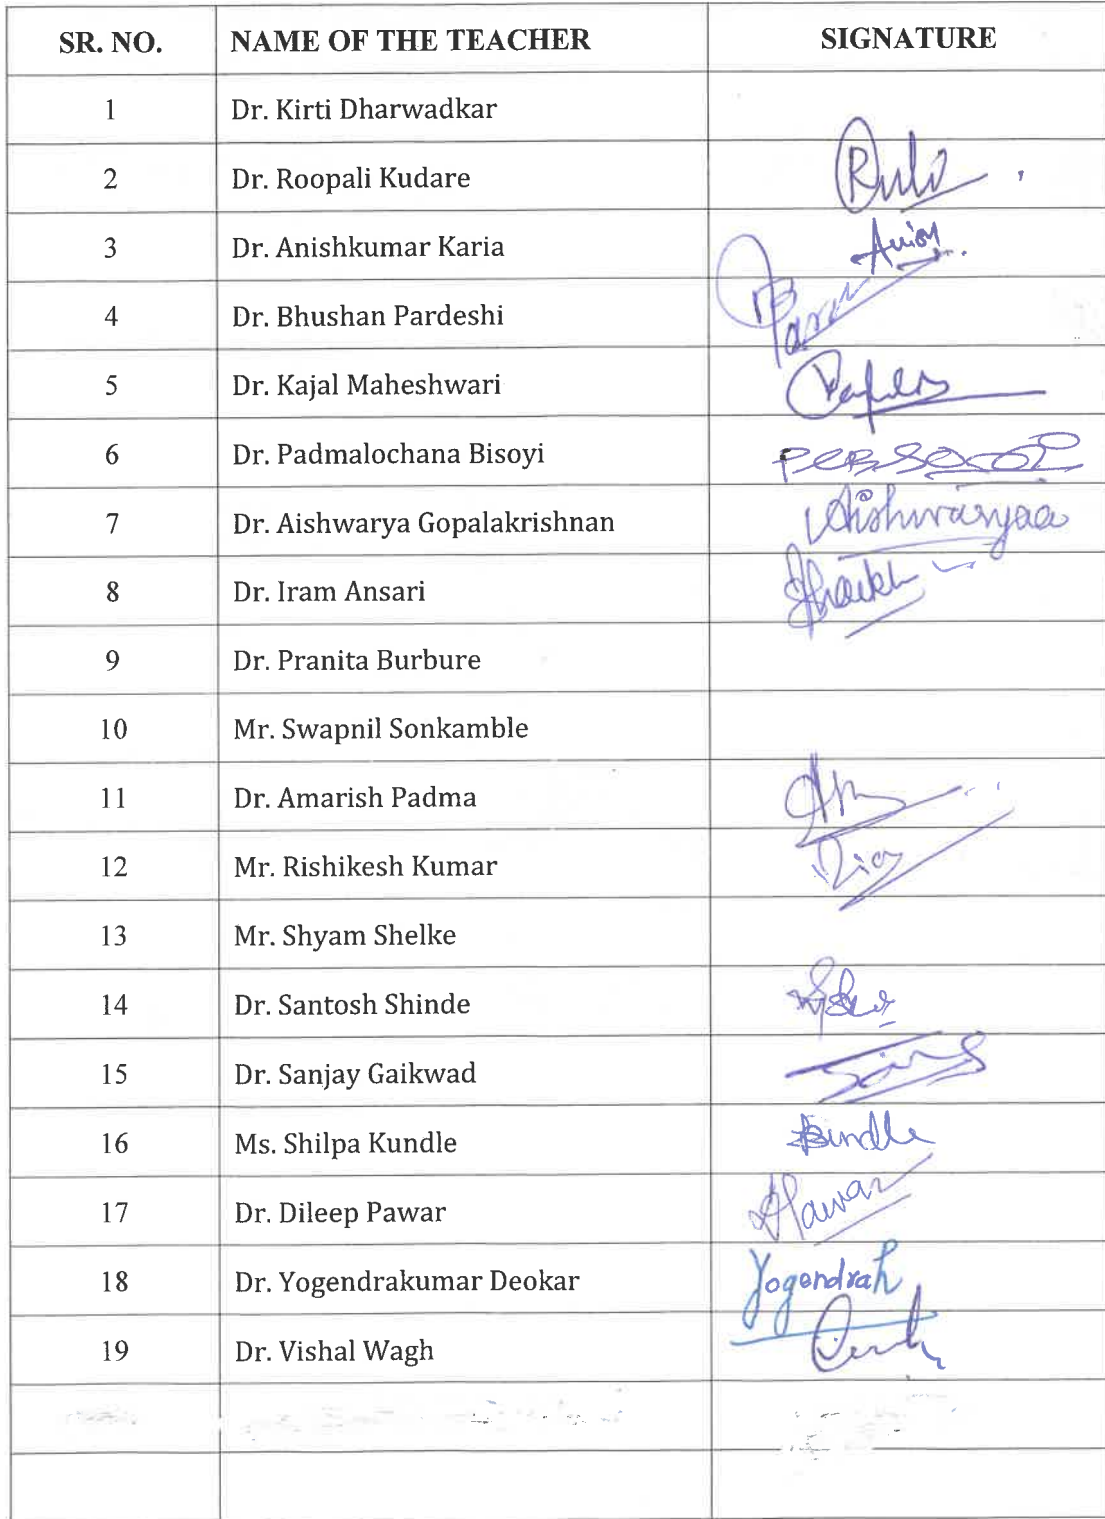 SR. NO. NAME OF THE TEACHER SIGNATURE
1 Dr. Kirti Dharwadkar
2 Dr. Roopali Kudare
3 Dr. Anishkumar Karia
4 Dr. Bhushan Pardeshi
5 Dr. Kajal Maheshwari
6 Dr. Padmalochana Bisoyi
7 Dr. Aishwarya Gopalakrishnan Aishwaryaa
8 Dr. Iram Ansari Shaikh
9 Dr. Pranita Burbure
10 Mr. Swapnil Sonkamble
11 Dr. Amarish Padma
12 Mr. Rishikesh Kumar
13 Mr. Shyam Shelke
14 Dr. Santosh Shinde
15 Dr. Sanjay Gaikwad
16 Ms. Shilpa Kundle
17 Dr. Dileep Pawar
18 Dr. Yogendrakumar Deokar Yogendra
19 Dr. Vishal Wagh